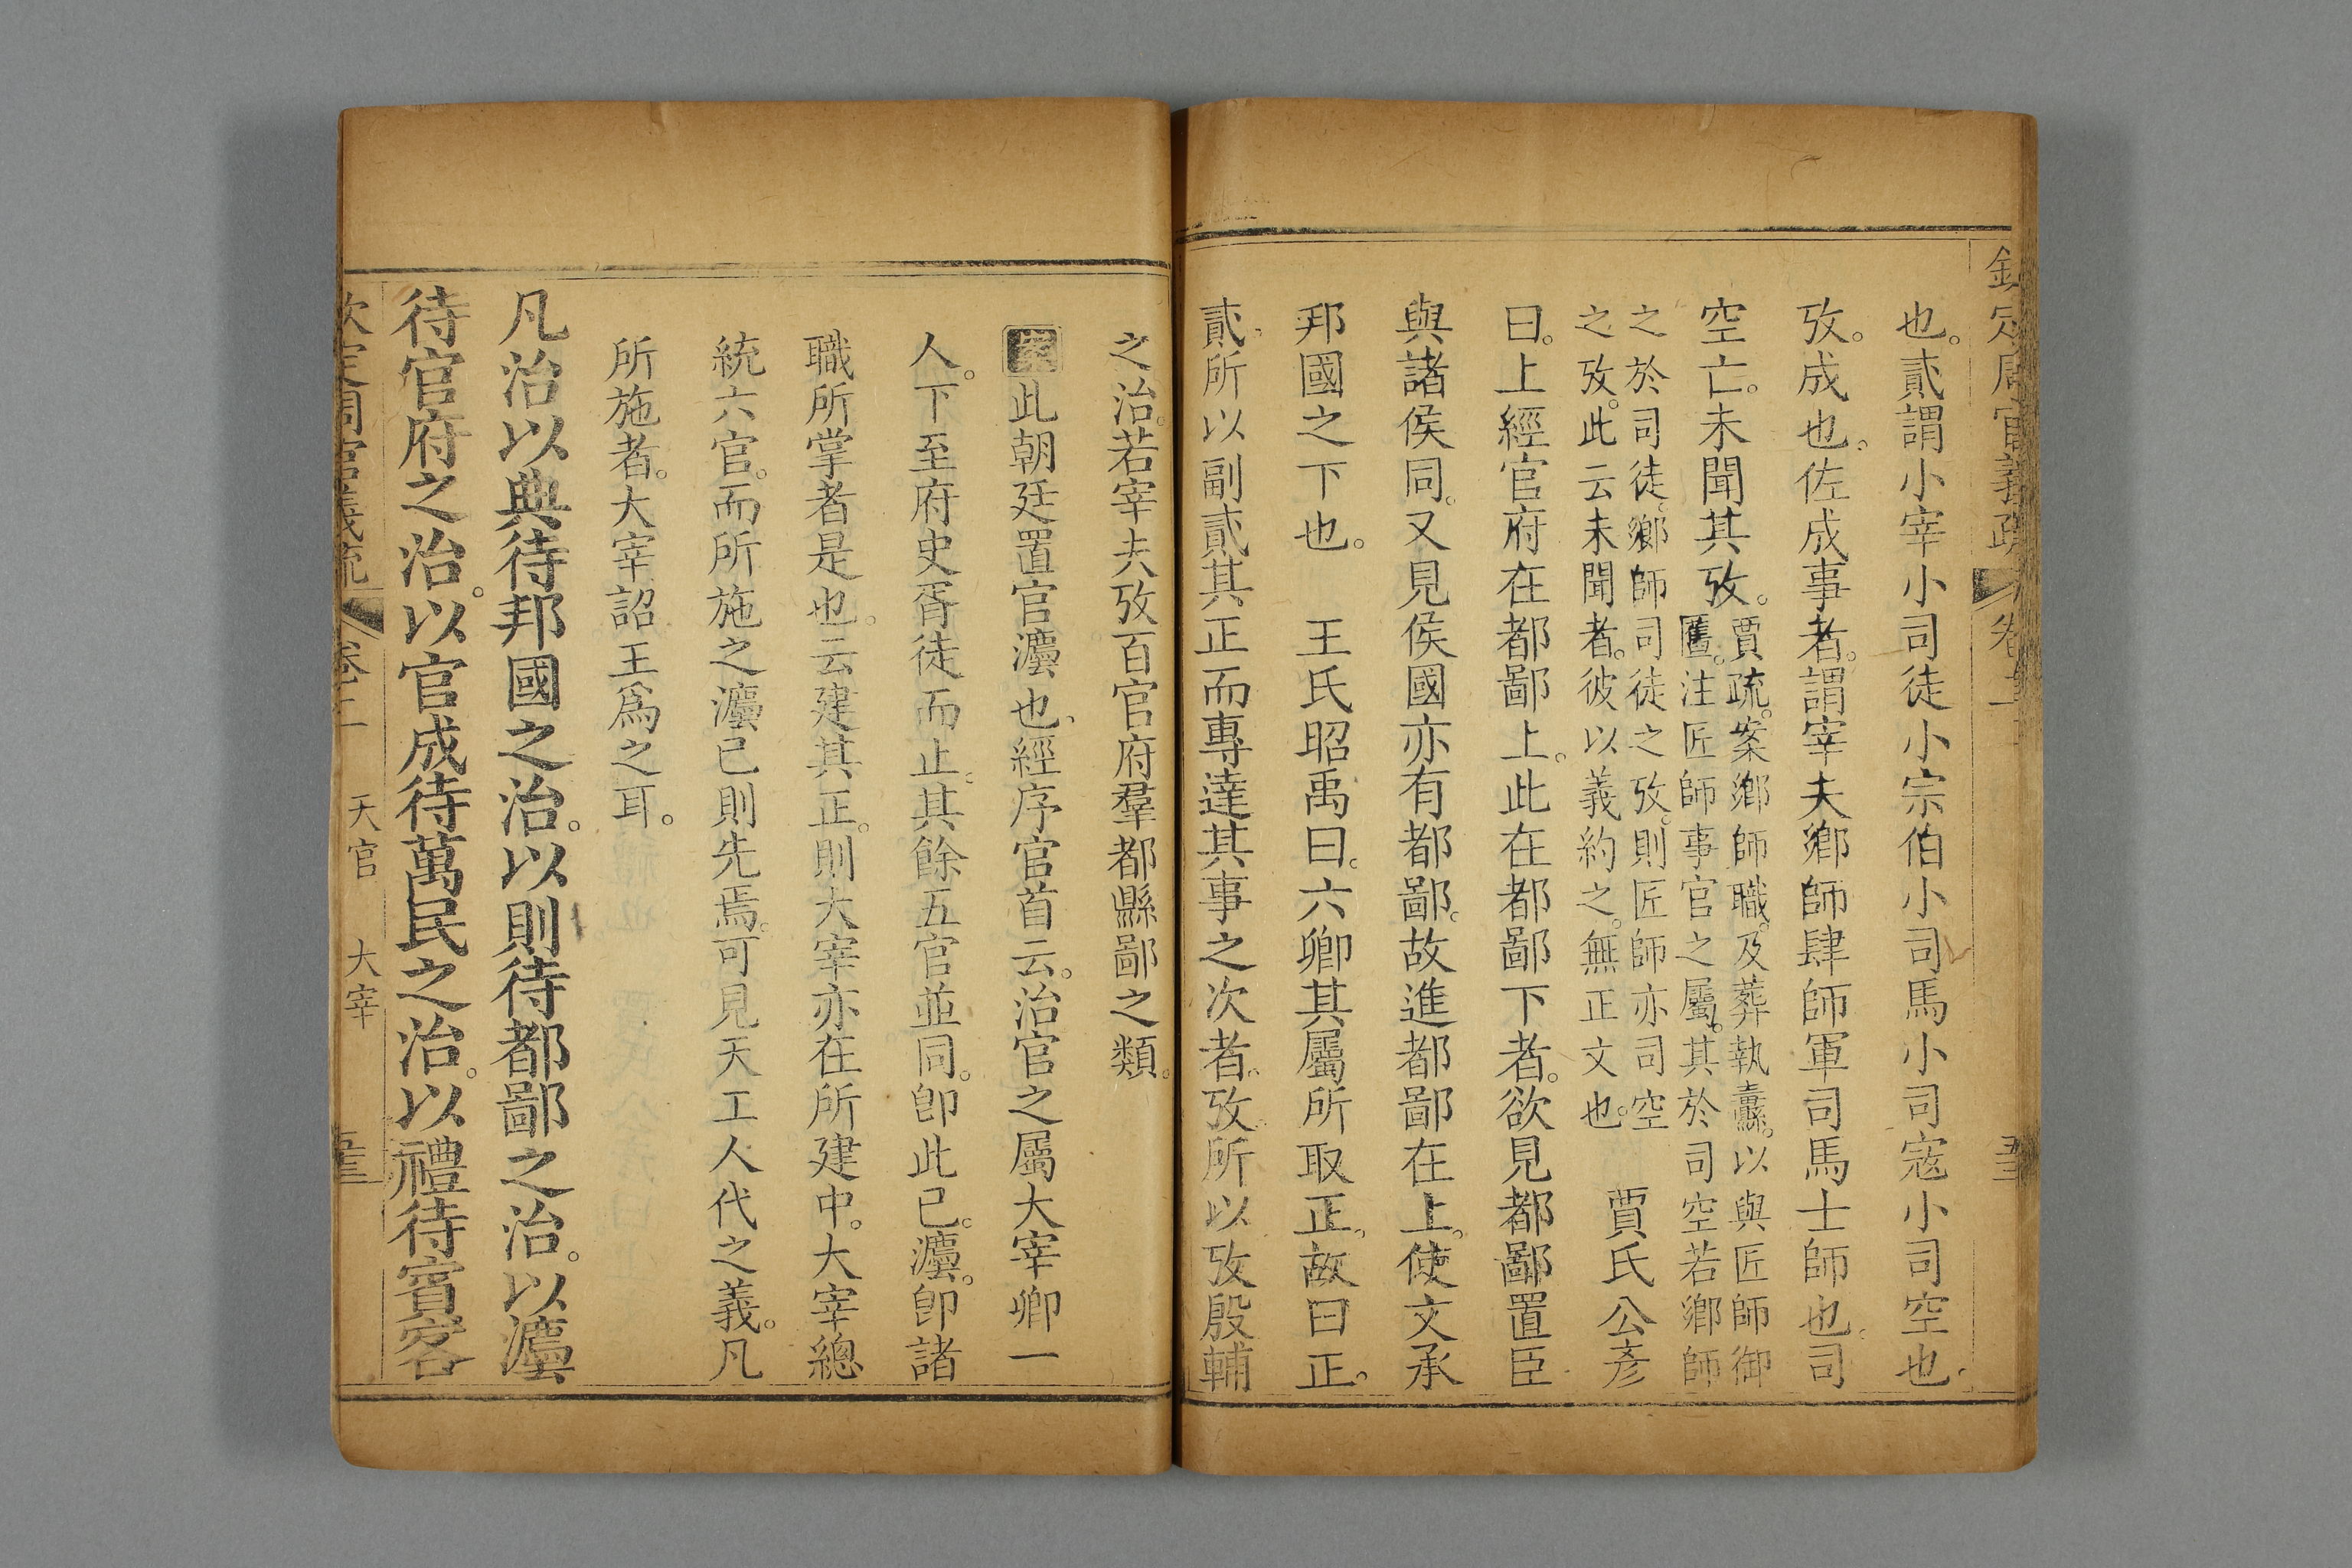 欽定周官義疏 卷二
也。貳謂小宰小司徒小宗伯小司馬小司寇小司空也。
攷。成也。佐成事者。謂宰夫鄉師肆師軍司馬士師也。司
空亡。未聞其攷。賈疏。案鄉師職。及葬執纛。以與匠師御
匶。注匠師事官之屬。其於司空若鄉師
之於司徒。鄉師司徒之攷。則匠師亦司空
之攷。此云未聞者。彼以義約之。無正文也。 賈氏公彥
曰。上經官府在都鄙上。此在都鄙下者。欲見都鄙置臣
與諸侯同。又見侯國亦有都鄙。故進都鄙在上。使文承
邦國之下也。 王氏昭禹曰。六卿其屬所取正。故曰正。
貳。所以副貳其正而專達其事之次者。攷所以攷殷輔
之治。若宰夫攷百官府羣都縣鄙之類。
案此朝廷置官灋也。經序官首云。治官之屬大宰卿一
人。下至府史胥徒而止。其餘五官並同。卽此已。灋。卽諸
職所掌者是也。云建其正。則大宰亦在所建中。大宰總
統六官。而所施之灋已則先焉。可見天工人代之義。凡
所施者。大宰詔王爲之耳。
凡治以典待邦國之治。以則待都鄙之治。以灋
待官府之治。以官成待萬民之治。以禮待賓客
欽定周官義疏 卷二 天官 大宰